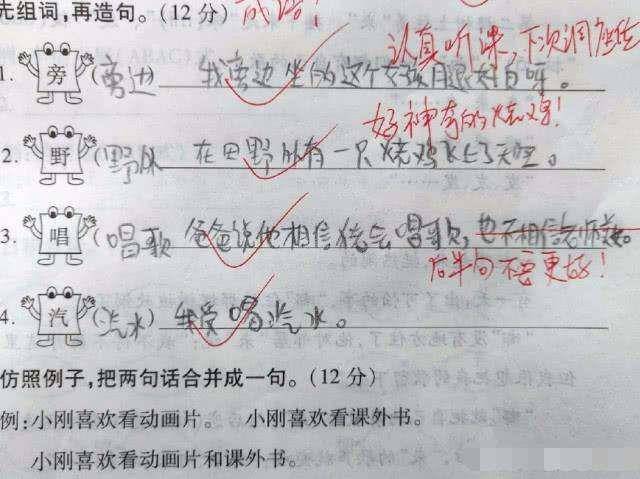 先组词,再造句。(12分)
认真听课,下次调座位
1. 旁 (旁边) 我旁边坐的这个女孩
好神奇的烧鸡!
2. 野 (野外) 在田野外有一只烧鸡飞上了天空。
3. 唱 (唱歌) 爸爸说他相信猪会唱歌,也不相信老师
后半句不要更好!
4. 汽 (汽水) 我爱喝汽水。
仿照例子,把两句话合并成一句。(12分)
例:小刚喜欢看动画片。 小刚喜欢看课外书。
小刚喜欢看动画片和课外书。